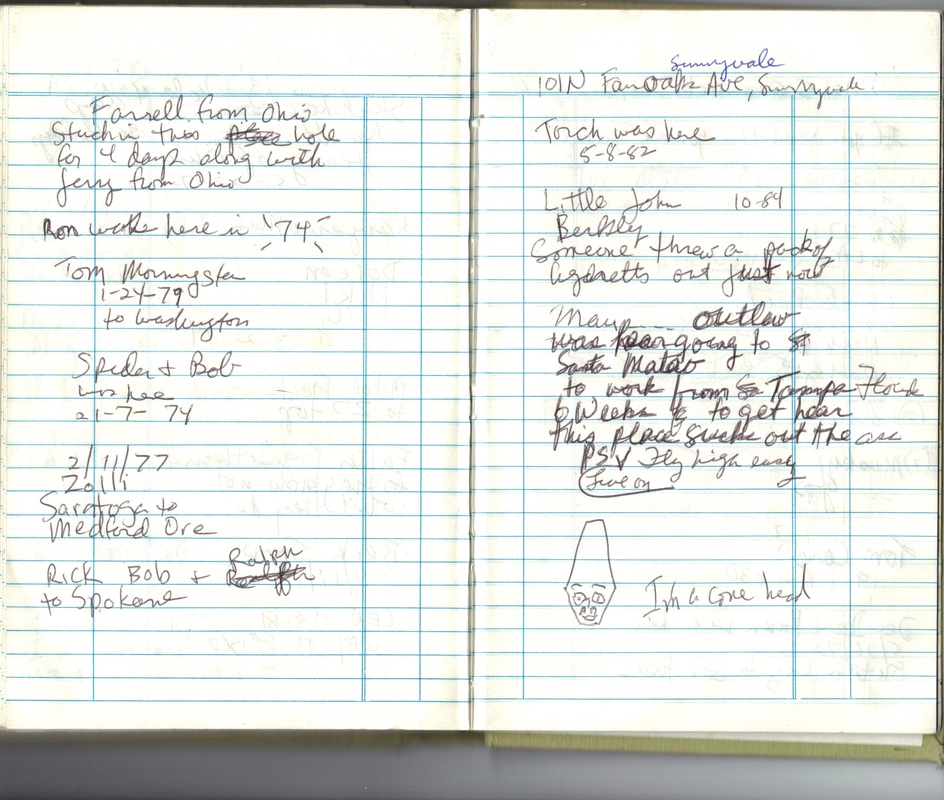 Farrell from Ohio
Stuck in this place hole
for 4 days along with
Jerry from Ohio
Ron woke here in '74
Tom Morningster
1-24-79
to washington
Spider + Bob
was hee
1-7-74
2/11/77
Saratoga to
Medford Ore
Rick Bob + Ralph
to Spokane
Sunnyvale
101N Fairoaks Ave, Sunnyvale
Torch was here
5-8-82
Little John 10-84
Berkly
Someone threw a pack of
Cigaretts out just now
outlaw
was going to
Santa Matao
to work from Tampa
6 Weeks to get hear
this place sucks out the ass
PSV Fly high easy
Live on
Im a cone head